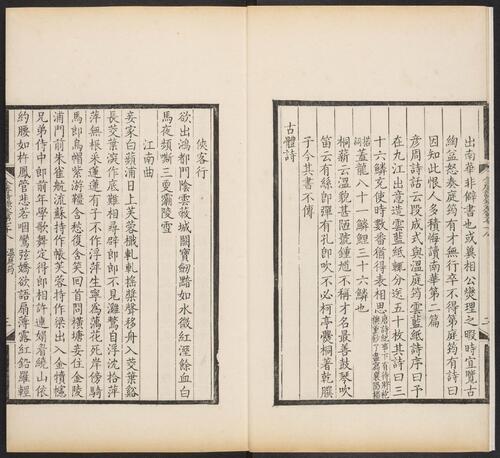 出南華非僻書也或冀相公燮理之暇時宜覽古
綯益怒奏庭筠有才無行卒不得第庭筠有詩曰
因知此恨人多積悔讀南華第二篇
彥周詩話云段成式與溫庭筠雲藍紙詩序曰予
在九江出意造雲藍紙輒分送五十枚其詩曰三
十六鱗充使時數番猶得表相思唐詩紀事下有待將袍襖重抄了盡寫襄陽播
搯詞蓋龍八十一鱗鯉三十六鱗也
桐薪云溫貌甚陋號鍾馗不稱才名最善鼓琴吹
笛云有絲即彈有孔即吹不必柯亭爨桐著乾𦠆
子今其書不傳
古體詩
俠客行
欲出鴻都門陰雲蔽城闕寶劒黯如水微紅溼餘血白
馬夜頻嘶三更灞陵雪
江南曲
妾家白蘋浦日上芙蓉檝軋軋搖槳聲移舟入茭葉谿
長茭葉深作底難相尋避郎郎不見鸂鶒自浮沈拾萍
萍無根采蓮蓮有子不作浮萍生寧為藕花死岸傍騎
馬郎烏帽紫游韁含愁復含笑回首問橫塘妾住金陵
浦門前朱雀航流蘇持作帳芙蓉持作梁出入金犢幰
兄弟侍中郎前年學歌舞定得郎相許連娟眉繞山依
約腰如杵鳳管悲若咽鸞弦嬌欲語扇薄露紅鉛羅輕